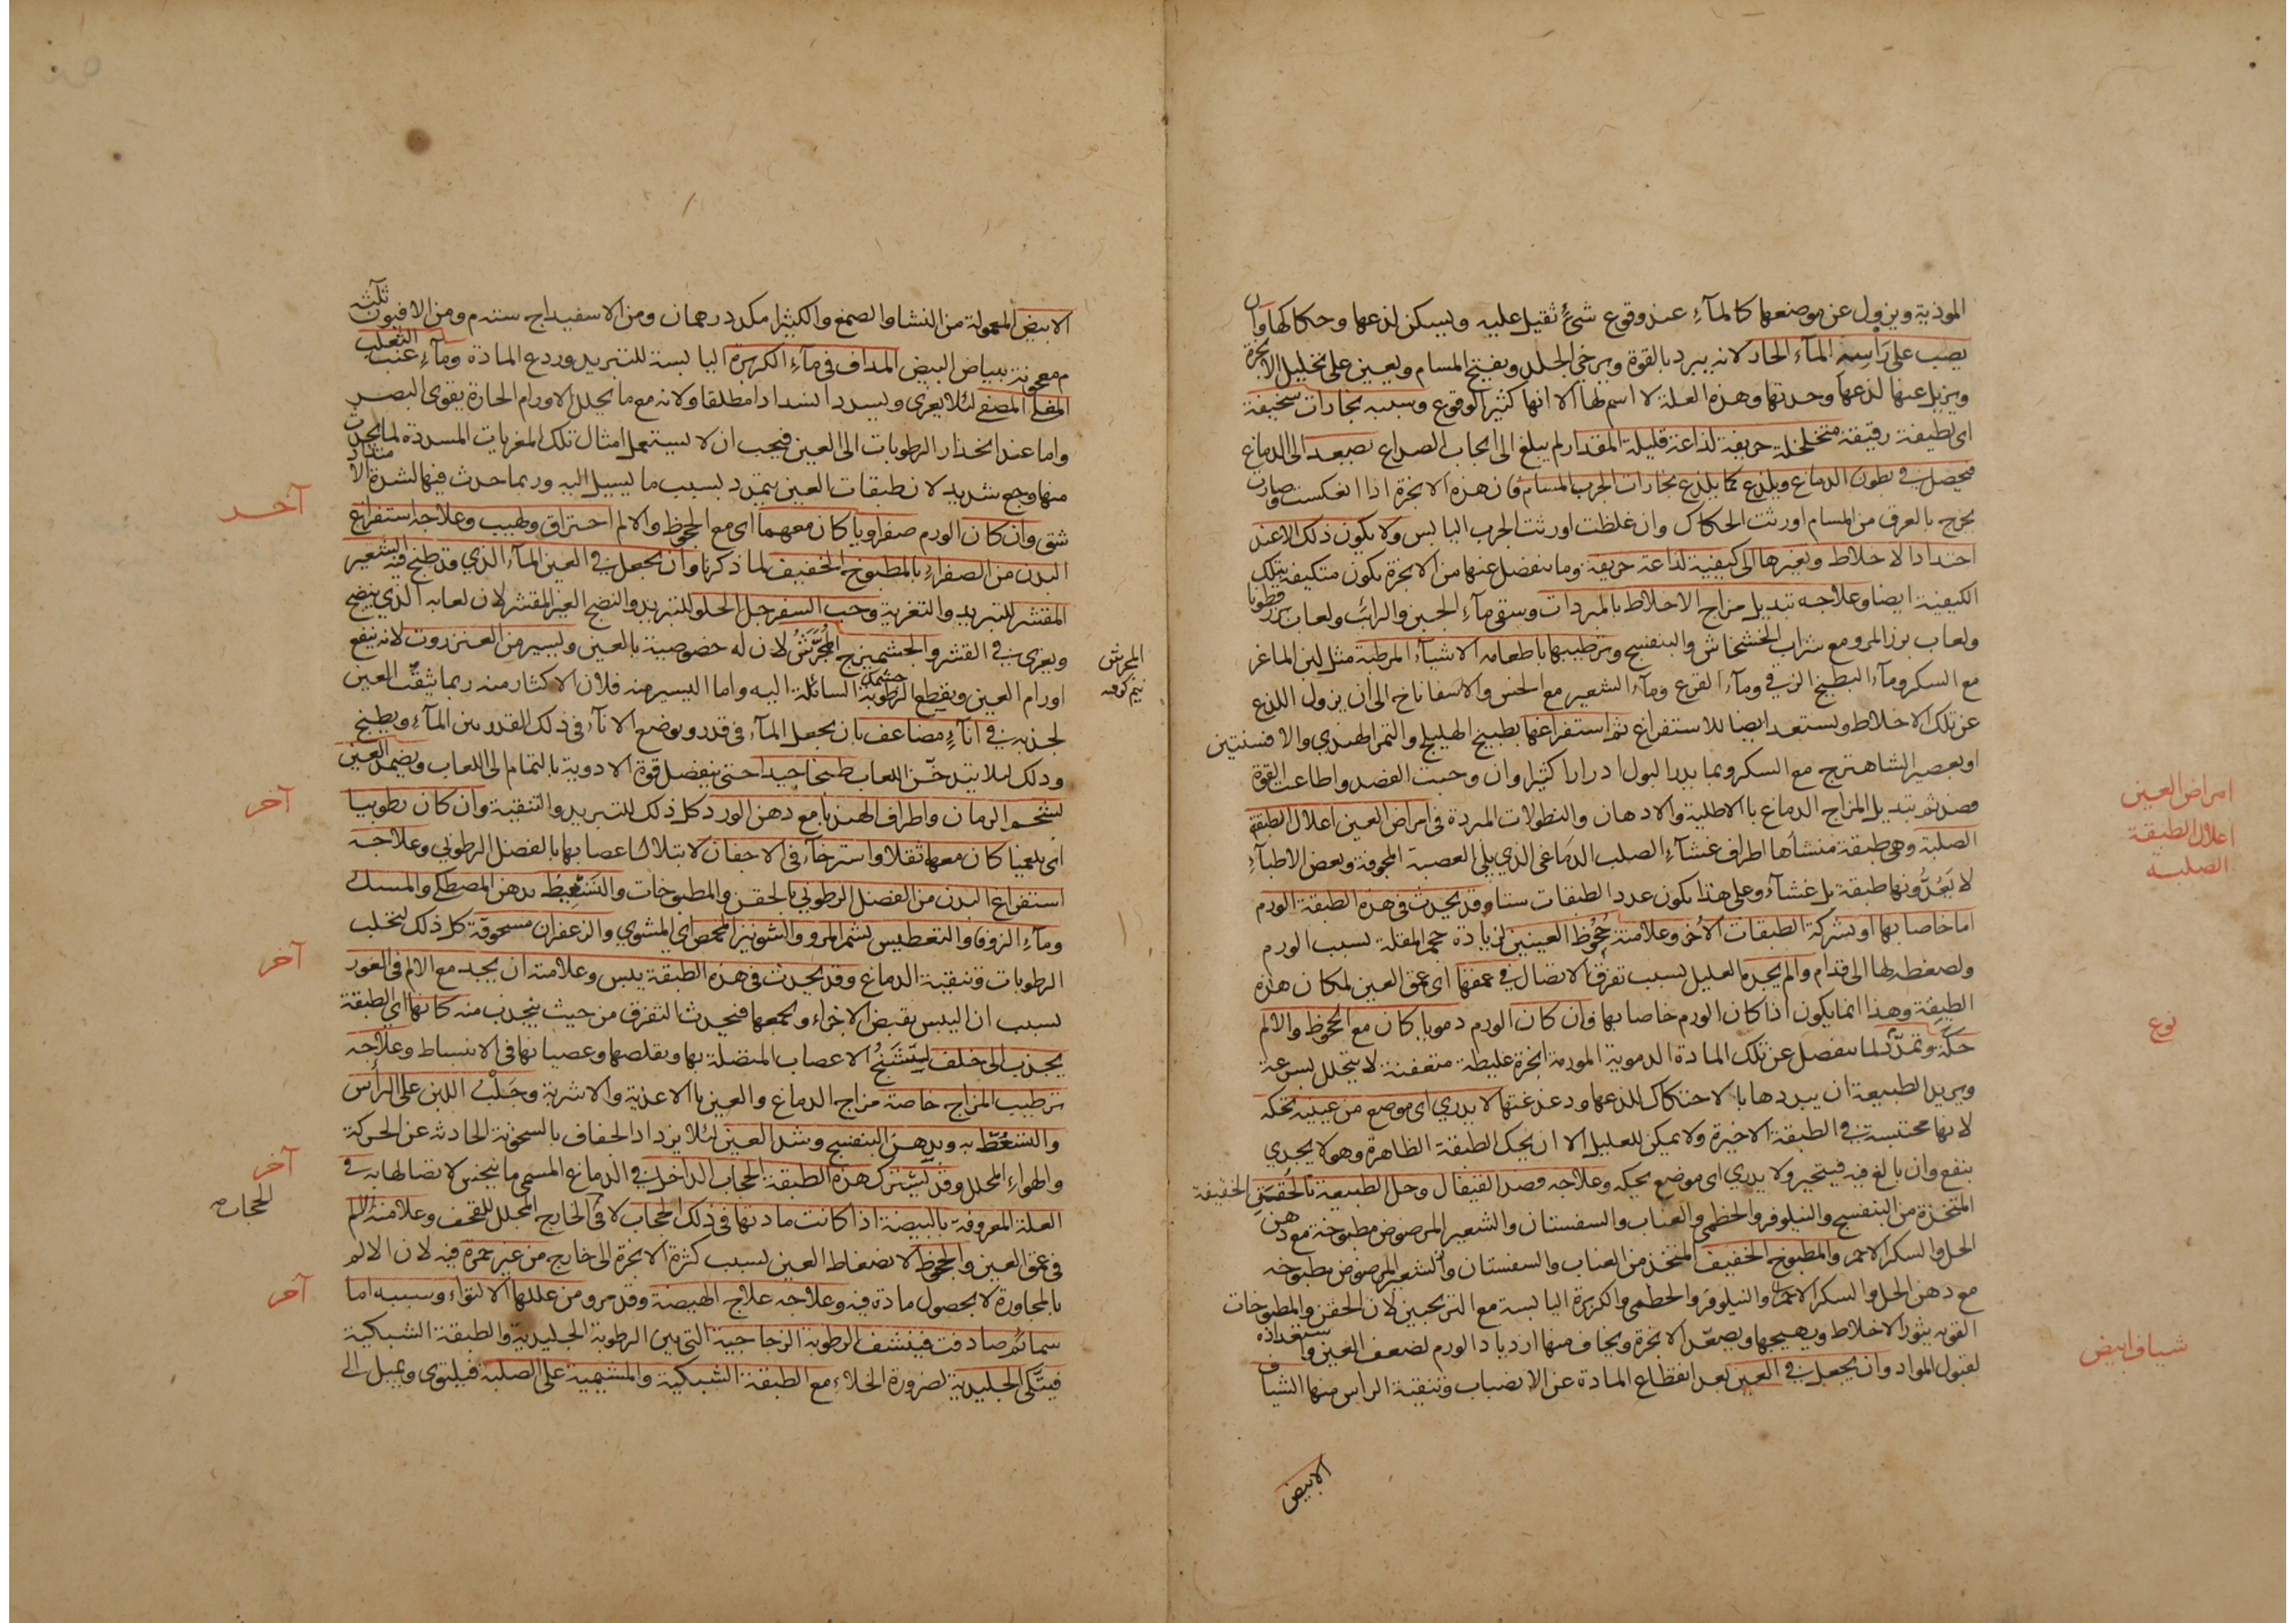 الموذية ويزول عن موضعها كالمآء عند وقوع شئ ثقيل عليه ويسكن لذعها وحكاكها وان
يصب على رأسه المآء الحار لانه يبرد بالقوة ويرخى الجلد ويفتح المسام ويعين على تحليل الابخرة
ويزيل عنها لذعها وحدتها وهذه العلة لا اسم لها الا انها كثيرة الوقوع وسببه بخارات سخيفة
اى لطيفة رقيقة متخلخلة حريفة لذاعة قليلة المقدار لم يبلغ الى ايجاب الصداع تصعد الى الدماغ
فتحصل فى بطون الدماغ ويلذع كما يلذع بخارات الجرب المسام فان هذه الابخرة اذا انعكست وصارت
يخرج بالعرق من المسام اورثت الحكاك وان غلظت اورثت الجرب اليابس ولا يكون ذلك الا عند
احتداد الاخلاط وتغيرها الى كيفية لذاعة حريفة وما ينفصل عنها من الابخرة يكون متكيفة بتلك
الكيفية ايضا وعلاجه تبديل مزاج الاخلاط بالمبردات وسقى مآء الجبن والرائب ولعاب بزرقطونا
ولعاب بزر المرو مع شراب الخشخاش والبنفسج وترطيبها باطعامه الاشيآء المرطبة مثل لبن الماعز
مع السكر ومآء البطيخ الزقى ومآء القرع ومآء الشعير مع الخس والاسفاناخ الى ان يزول اللذع
عن تلك الاخلاط ويستعد ايضا للاستفراغ ثم استفراغها بطبيخ الهليلج والتمر الهندي والافسنتين
او بعصير الشاهترج مع السكر وبما يدر البول ادرارا كثيرا وان وجبت الفصد واطاعت القوة
فصد ثم تبديل المزاج الدماغ بالاطلية والادهان والنطولات المبردة فى امراض العين اعلال الطبقة
الصلبة وهى طبقة منشأها اطراف غشآء الصلب الدماغى الذي يلى العصبة المجوفة وبعض الاطبآء
لا يعدونها طبقة بل غشآء وعلى هذا يكون عدد الطبقات ستا وقد يحدث فى هذه الطبقة الورم
اما خاصا بها او بشركة الطبقات الأخر وعلامتة جحوظ العينين لزيادة حجم المقلة بسبب الورم
ولضغطه لها الى قدام والم يجده العليل بسبب تفرق الاتصال فى عمقها اى عمق العين لمكان هذه
الطبقة وهذا انما يكون اذا كان الورم خاصا بها وان كان الورم دمويا كان مع الجحوظ والالم
حكة وتمدد لما ينفصل عن تلك المادة الدموية المورمة ابخرة غليظة متعفنة لا يتحلل بسرعة
ويريد الطبيعة ان يبددها بالاحتكاك للذعها ودغدغتها لا يدري اى موضع من عينيه يحكه
لانها محتبسة فى الطبقة الاخيرة ولا يمكن للعليل الا ان يحك الطبقة الظاهرة وهو لا يجدي
بنفع وان بالغ فيه فيتحير ولا يدري اى موضع يحكه وعلاجه فصد القيفال وحل الطبيعة بالحقن الخفيفة
المتخذة من البنفسج والنيلوفر والخطمى والعناب والسفستان والشعير المرضوض مطبوخة مع دهن
الحل والسكر الاحمر والمطبوخ الخفيف المتخذ من العناب والسفستان والشعير المرضوض مطبوخه
مع دهن الحل والسكر الاحمر والنيلوفر والخطمى والكزبرة اليابسة مع الترنجبين لان الحقن والمطبوخات
القويه يثور الاخلاط ويهيجها ويصعد الابخرة ويخاف منها ازدياد الورم لضعف العين واستعداده
لقبول المواد وان يجعل فى العين بعد انقطاع المادة عن الانصباب وتنقية الراس منها الشياف
الابيض
امراض العين
اعلال الطبقة
الصلبه
نوع
شياف ابيض
الابيض المعمولة من النشا والصمغ والكثيرا مكد درهمان ومن الاسفيداج ستة م ومن الافيون ثلثه
م معجونة ببياض البيض المداف فى مآء الكزبرة اليابسة للتبريد وردع المادة ومآء عنب الثعلب
المغلى المصفى لئلا يغرى ويسدد انسدادا مطلقا ولانه مع ما يحلل الاورام الحارة يقوى البصر
واما عند انحدار الرطوبات الى العين فيجب ان لا يستعمل امثال تلك المغريات المسددة لما يحدث
منها وجع شديد لان طبقات العين يتمدد بسبب ما يسيل اليه وربما حدث فيها لشدة الامتداد
شق وان كان الورم صفراويا كان معهما اى مع الجحوظ والالم احتراق ولهيب وعلاجه استفراغ
البدن من الصفراء بالمطبوخ الخفيف لما ذكرنا وان يجعل فى العين المآء الذي قد طبخ فيه الشعير
المقشر للتبريد والتغرية وحب السفرجل الحلو للتبريد والنضج الغير المقشر لان لعابه الذي ينضج
ويغرى فى القشر والجشميزج المجرش لان له خصوصية بالعين ويسير من العنزروت لانه ينفع
اورام العين ويقطع الرطوبة السائلة اليه واما اليسير منه فلان الاكثار منه ربما يثقب العين
لجذبه فى انآء مضاعف بان يجعل المآء فى قدر ويوضع الانآء فى ذلك القدر من المآء ويطبخ
وذلك لئلا يتدخن اللعاب طبخا جيدا حتى ينفصل قوة الادوية بالتمام الى اللعاب ويضمد العين
بشحم الرمان واطراف الهندبا مع دهن الورد كل ذلك للتبريد والتنقية وان كان رطوبيا
اى بلغميا كان معها ثقلا واسترخآء فى الاجفان لابتلال اعصابها بالفضل الرطوبى وعلاجه
استفراغ البدن من الفضل الرطوبي بالحقن والمطبوخات والتسعيط بدهن المصطكى والمسك
ومآء الزوفا والتعطيس بشم المرو والشونيز المحمص اى المشوي والزعفران مسحوقة كل ذلك لتجلب
الرطوبات وتنقية الدماغ وقد يحدث فى هذه الطبقة يبس وعلامته ان يجد مع الالم فى الغور
بسبب ان اليبس يقبض الاجزاء ويجمعها فيحدث التفرق من حيث ينجذب منه كانها اى الطبقة
يجذب الى خلف لتشنج الاعصاب المتصلة بها وتقلصها وعصيانها فى الانبساط وعلاجه
ترطيب المزاج خاصة مزاج الدماغ والعين بالاغذية والاشربة وحلب اللبن على الرأس
والتسعط به وبدهن البنفسج وشد العين لئلا يزداد الجفاف بالسخونة الحادثة عن الحركة
والهواء المحلل وقد يشترك هذه الطبقة الحجاب الداخل فى الدماغ المسمى مانيجنس لاتصالها به فى
العلة المعروفة بالبيضة اذا كانت مادتها فى ذلك الحجاب لا فى الخارج المجلل للقحف وعلامته الم
فى عمق العين والجحوظ لانضغاط العين بسبب كثرة الابخرة الى خارج من غير حمرة فيه لان الالم
بالمجاورة لا بحصول مادة فيه وعلاجه علاج الهيضة وقد مر ومن عللها الالتواء وسببه اما
سمائم صادفت فينشف الرطوبة الزجاجية التى بين الرطوبة الجليدية والطبقة الشبكية
فيتكى الجليدية لضرورة الخلاء مع الطبقة الشبكية والمشيمية على الصلبة فيلتوى ويميل الى
المجرش
نيم كوفته
آخر
آخر
آخر
آخر
آخر